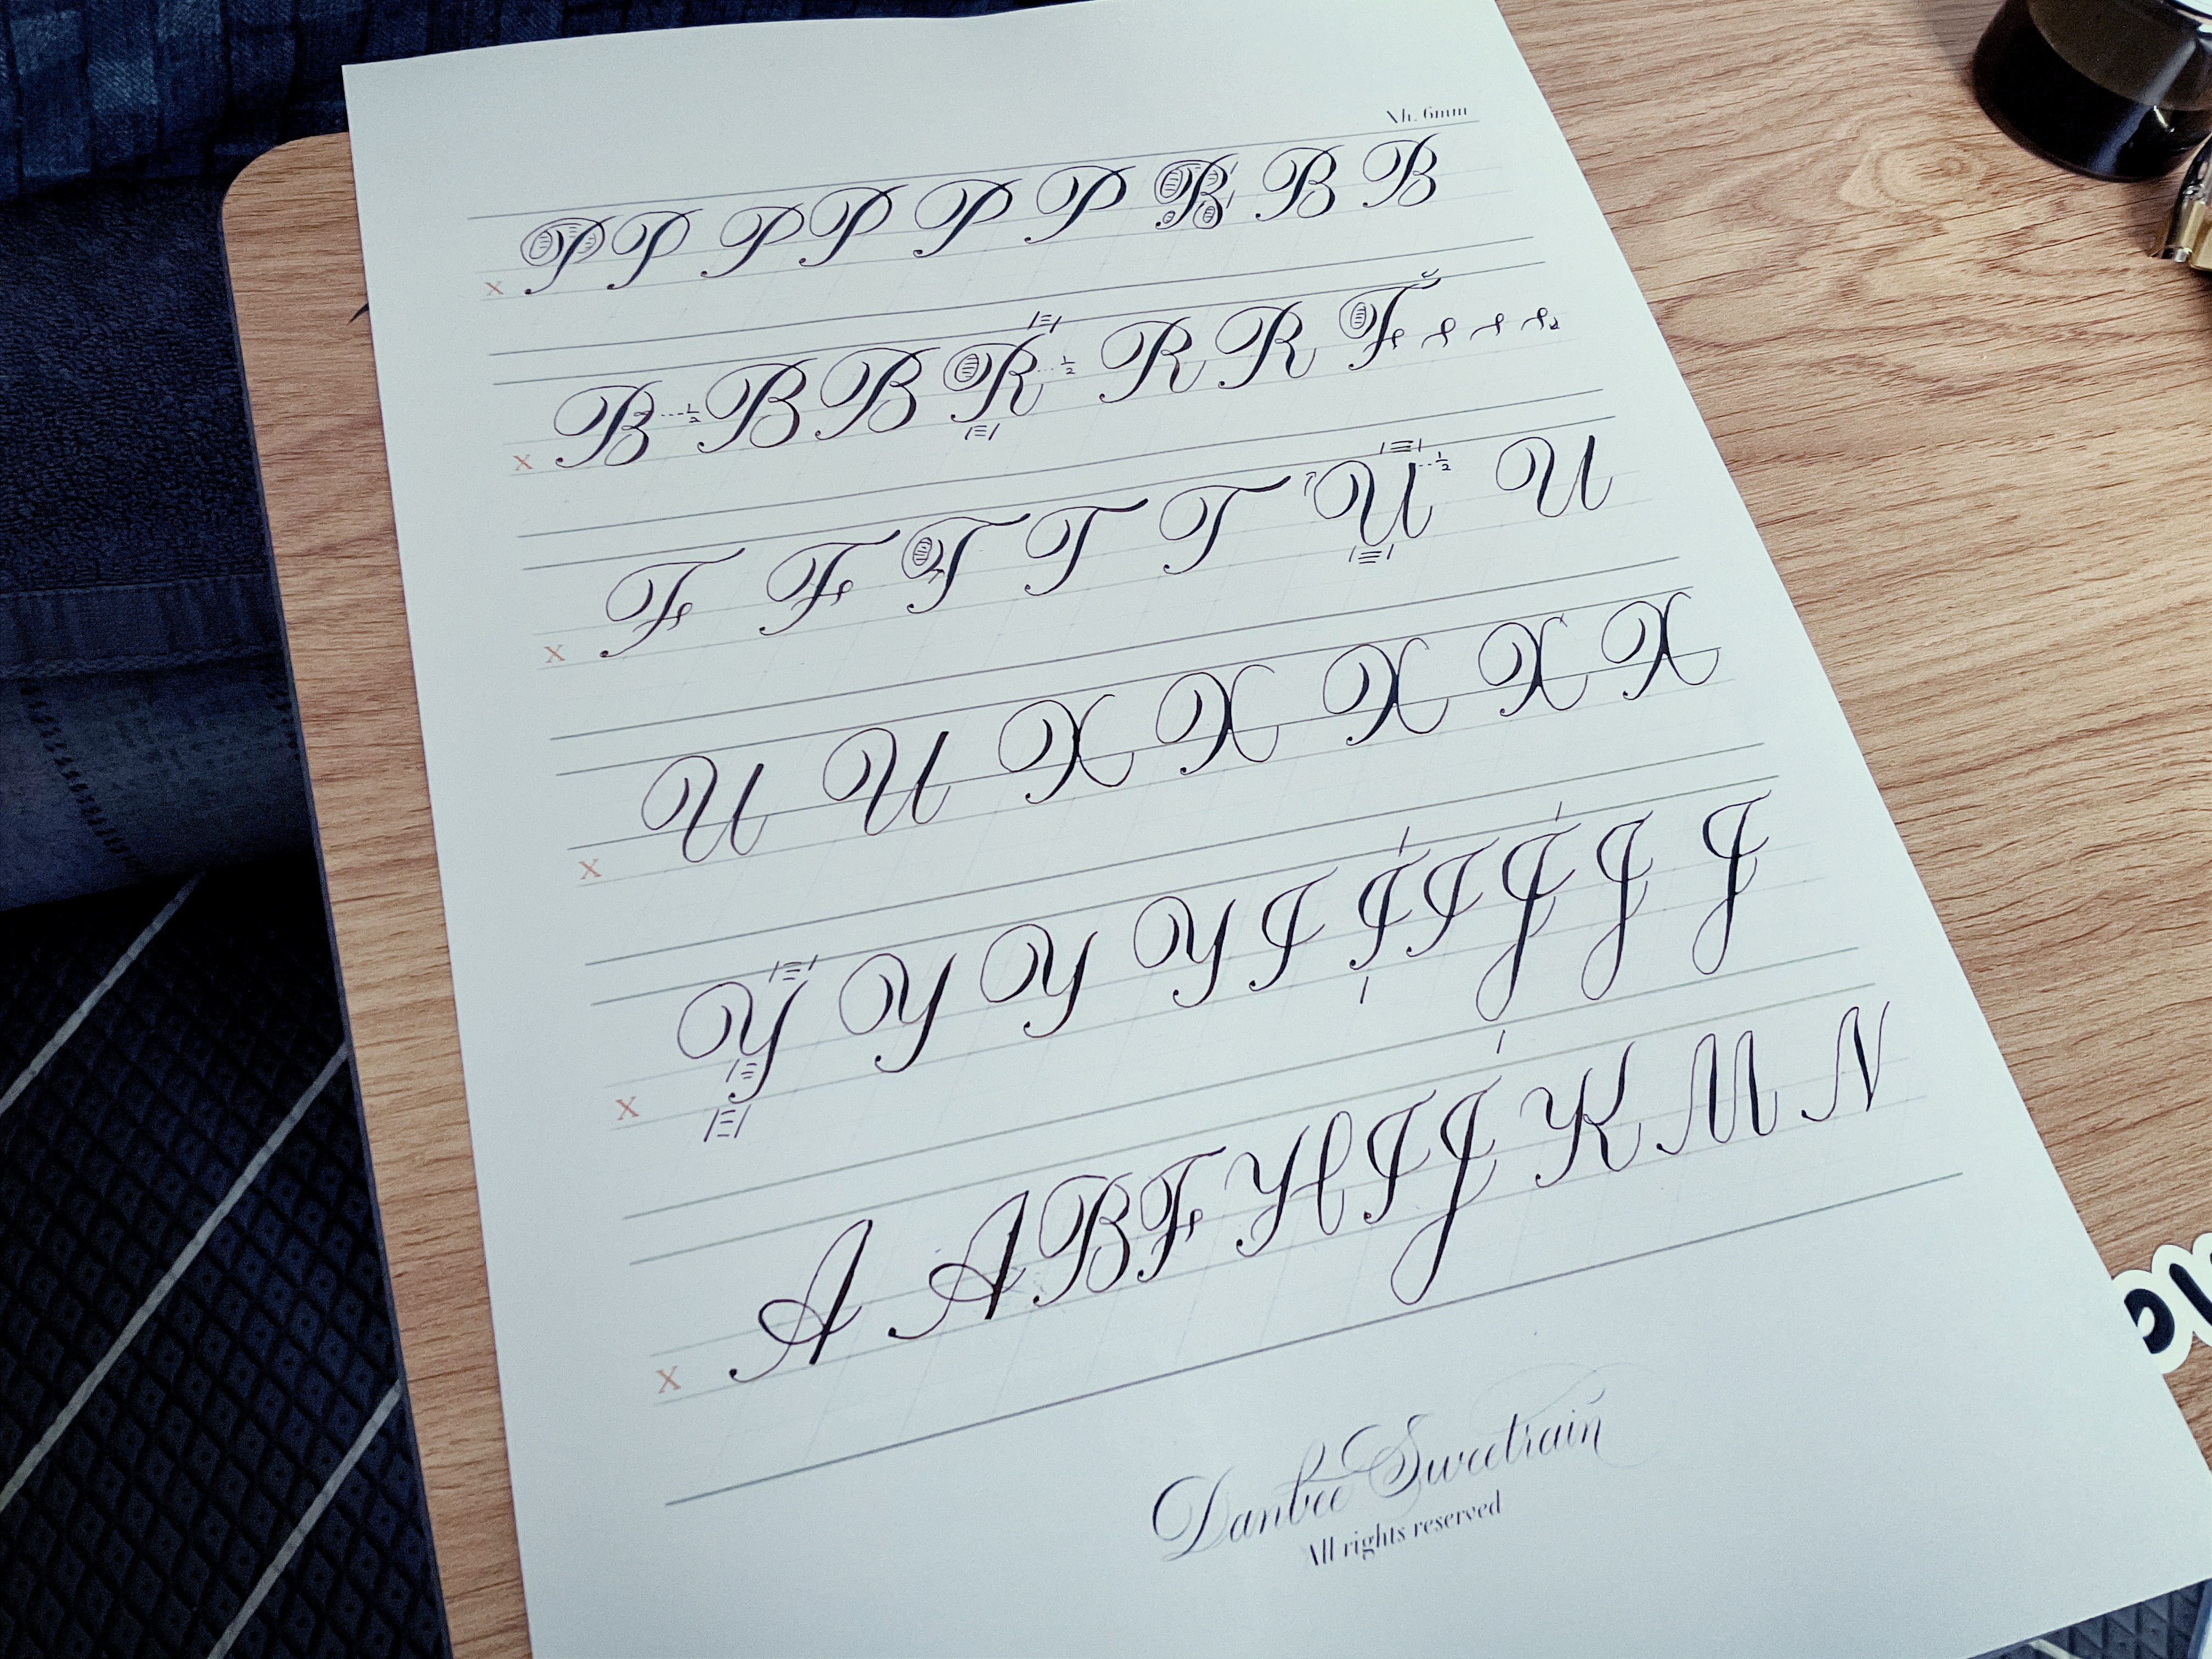 Xh. 6mm
x P P P P P P B B B
x B 1/2 B B R 1/2 R R F
x F F T T T U 1/2 U
x U U X X X X X
x Y Y Y Y I I I J J J
x A A B F H I J K M N
Danbee Sweetrain
All rights reserved